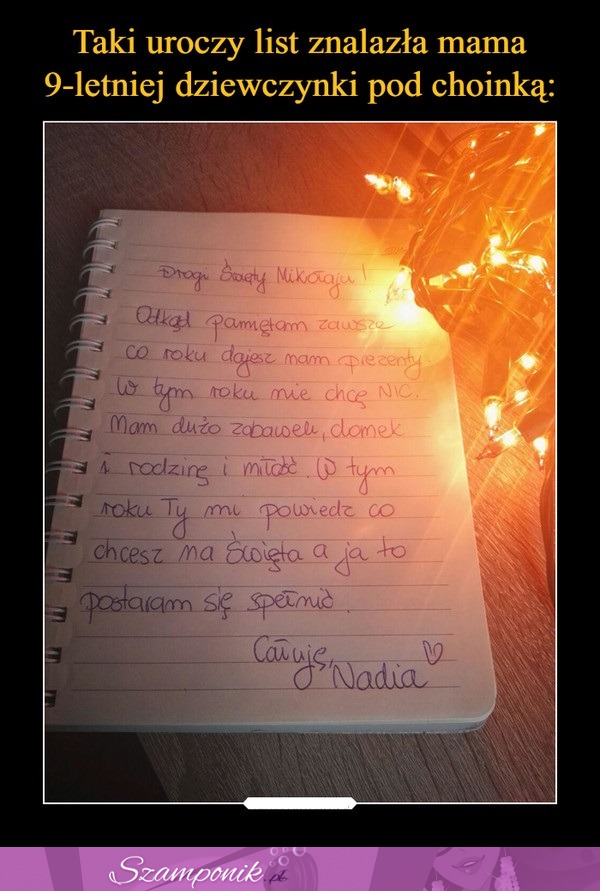 Taki uroczy list znalazła mama
9-letniej dziewczynki pod choinką:
Drogi Święty Mikołaju!
Odkąd pamiętam zawsze
co roku dajesz nam prezenty.
W tym roku nie chcę NIC.
Mam dużo zabawek, domek
i rodzinę i miłość. W tym
roku Ty mi powiedz co
chcesz na Święta a ja to
postaram się spełnić.
Całuję,
Nadia
Szamponik.pl